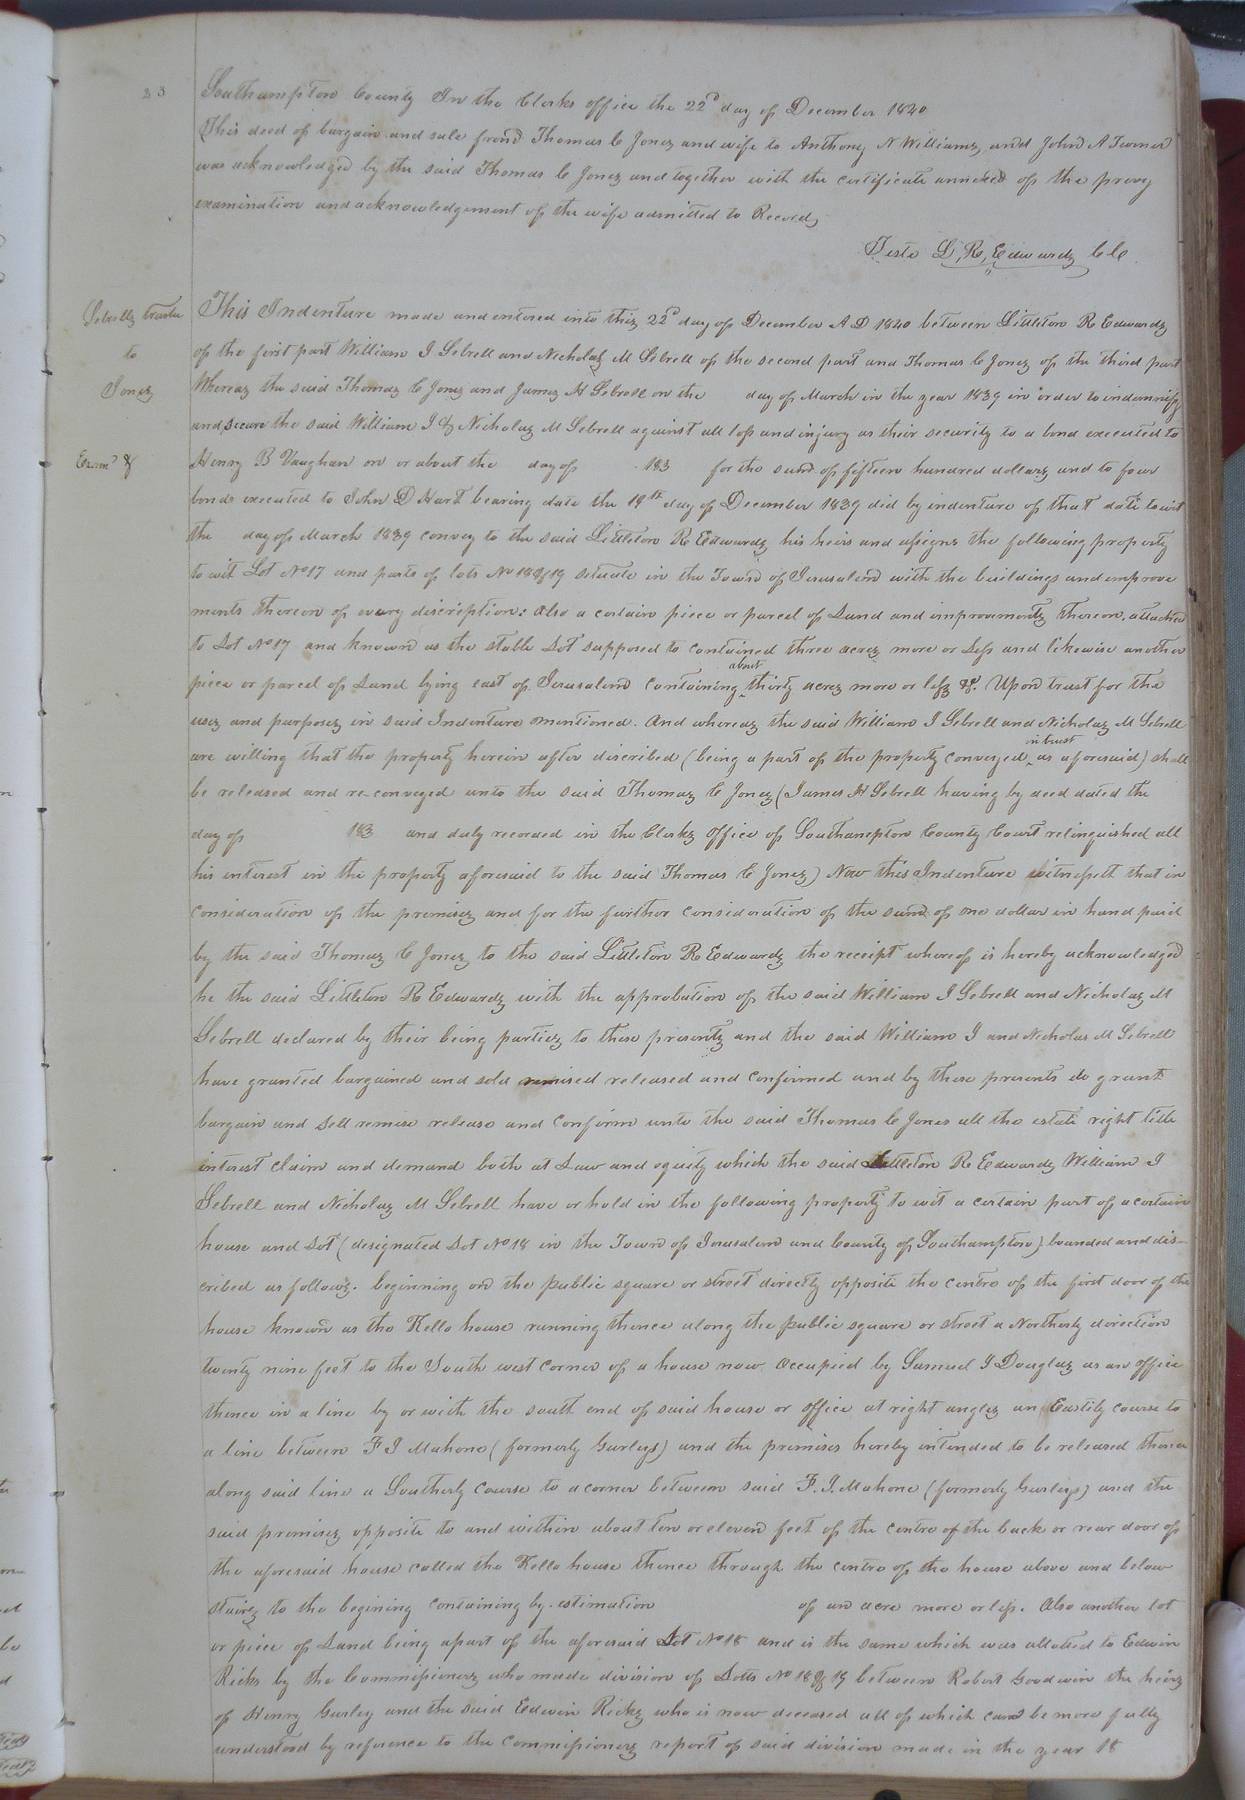 23
Southampton County In the Clerks office the 22d day of December 1840
This deed of bargain and sale from Thomas C Jones and wife to Anthony N Williams, and John A Turner
was acknowledged by the said Thomas C Jones and together with the certificate annexed of the privy
examination and acknowledgement of the wife admitted to Record,
Teste L, R, Edwards CC
Sebrells trustee
to
Jones
Exam.d &
This Indenture made and entered into this 22d day of December A D 1840 between Littleton R Edwards
of the first part William I Sebrell and Nicholas M Sebrell of the second part and Thomas C Jones of the third part
Whereas the said Thomas C Jones and James H Sebrell on the day of March in the year 1839 in order to indemnify
and secure the said William I & Nicholas M Sebrell against all loss and injury as their security to a bond executed to
Henry B Vaughan on or about the day of 183 for the sum of fifteen hundred dollars and to four
bonds executed to John D Hart bearing date the 19th day of December 1839 did by indenture of that date to wit
the day of March 1839 convey to the said Littleton R Edwards his heirs and assigns the following property
to wit Lot No 17 and parts of lots No 18 & 19 situate in the Town of Jerusalem with the buildings and improve
ments thereon of every discription: also a certain piece or parcel of Land and improvements thereon, attached
to Lot No 17 and known as the stable Lot supposed to contained three acres more or Less and likewise another
piece or parcel of Land lying east of Jerusalem containing about thirty acres more or less &c. Upon trust for the
uses and purposes in said Indenture mentioned. And whereas the said William I Sebrell and Nicholas M Sebrell
are willing that the property herein after discribed (being a part of the property conveyed in trust as aforesaid) shall
be released and re-conveyed unto the said Thomas C Jones (James H Sebrell having by deed dated the
day of 183 and duly recorded in the Clerks office of Southampton County Court relinquished all
his interest in the property aforesaid to the said Thomas C Jones) Now this Indenture witnesseth that in
consideration of the premises and for the further consideration of the sum of one dollar in hand paid
by the said Thomas C Jones to the said Littleton R Edwards the receipt whereof is hereby acknowledged
he the said Littleton R Edwards with the approbation of the said William I Sebrell and Nicholas M
Sebrell declared by their being parties to these presents and the said William I and Nicholas M Sebrell
have granted bargained and sold remised released and confirmed and by these presents do grant
bargain and sell remise release and confirm unto the said Thomas C Jones all the estate right title
interest claim and demand both at Law and equity which the said Littleton R Edwards William I
Sebrell and Nicholas M Sebrell have or hold in the following property to wit a certain part of a certain
house and Lot (designated Lot No 18 in the Town of Jerusalem and County of Southampton) bounded and dis-
cribed as follows. beginning on the public square or street directly opposite the centre of the first door of the
house known as the Kello house running thence along the public square or street a Northerly direction
twenty nine feet to the South west corner of a house now occupied by Samuel I Douglas as an office
thence in a line by or with the south end of said house or office at right angles an Eastely course to
a line between F I Mahone (formerly Gurleys) and the premises hereby intended to be released thence
along said line a Southerly course to a corner between said F. I. Mahone (formerly Gurleys) and the
said premises opposite to and within about ten or eleven feet of the centre of the back or rear door of
the aforesaid house called the Kello house thence through the centre of the house above and below
stairs to the begining containing by estimation of an acre more or less. Also another lot
or piece of Land being apart of the aforesaid Lot No 18 and is the same which was allotted to Edwin
Ricks by the Commissioners who made division of Lotts No 18 & 19 between Robert Goodwin the heirs
of Henry Gurley and the said Edwin Ricks who is now deceased all of which can be more fully
understood by reference to the commissioners report of said division made in the year 18